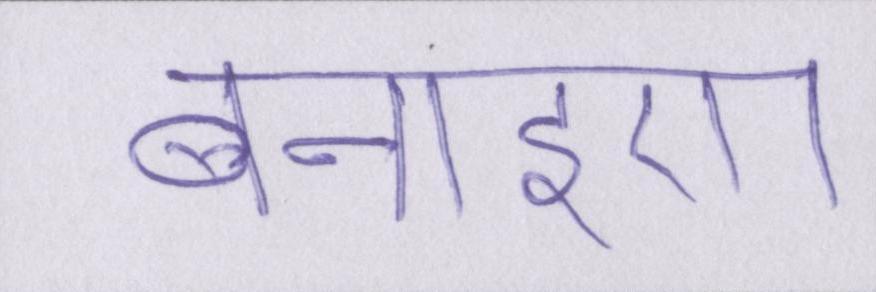 बनाइए।